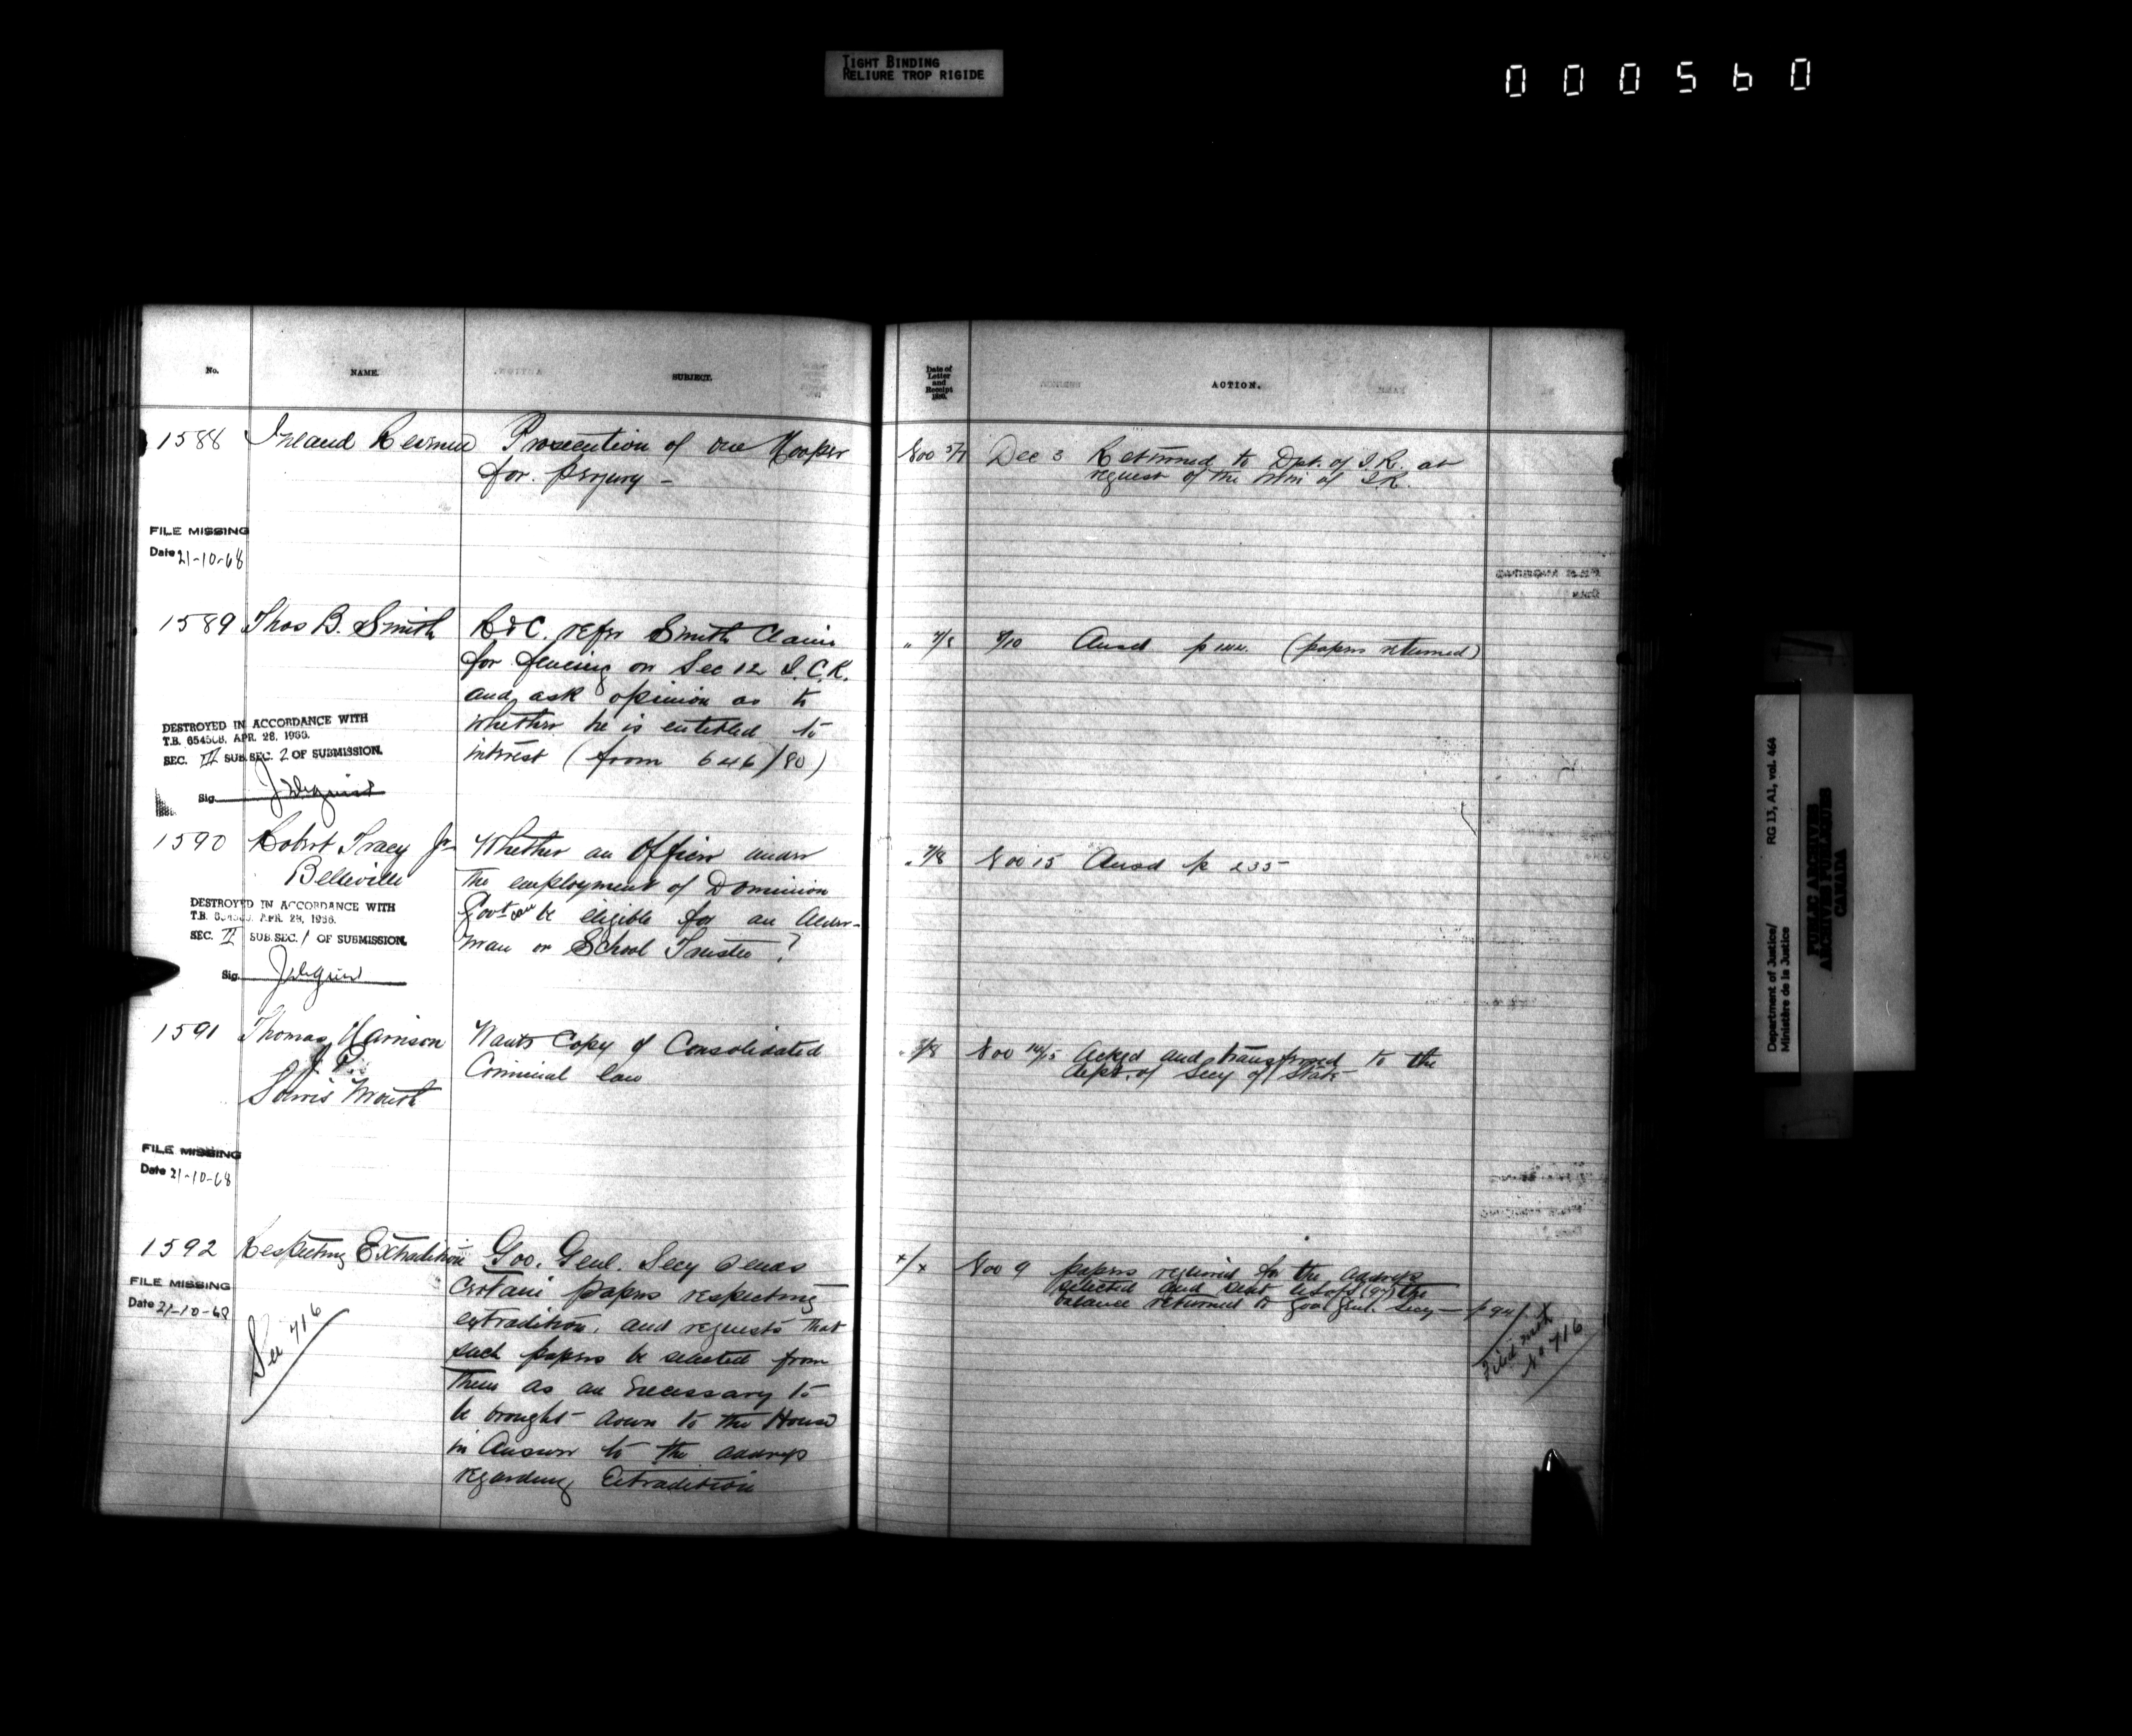 TIGHT BINDING
RELIURE TROP RIGIDE
000560
No. NAME. SUBJECT.
1588 Inland Revenue Prosecution of one Hooper
for perjury -
FILE MISSING
Date 21-10-68
1589 Thos B. Smith R & C. refer Smith Claim
for fencing on Sec 12 I.C.R.
and ask opinion as to
whether he is entitled to
interest (from 646/80)
DESTROYED IN ACCORDANCE WITH
T.B. 654508, APR. 28, 1966.
SEC. II SUB.SEC. 2 OF SUBMISSION.
Sig.
1590 Robert Tracy Jr Whether an Officer under
Belleville the employment of Dominion
Govt can be eligible for an Alder-
man or School Trustee?
DESTROYED IN ACCORDANCE WITH
T.B. 654508, APR. 28, 1966.
SEC. II SUB.SEC. 1 OF SUBMISSION.
Sig.
1591 Thomas Harrison Wants Copy of Consolidated
J.P. Criminal law
FILE MISSING
Date 21-10-68
1592 Respecting Extradition Gov. Genl. Secy sends
certain papers respecting
extradition, and requests that
such papers be selected from
them as are necessary to
be brought down to the House
in Answer to the address
regarding Extradition
FILE MISSING
Date 21-10-68
See 716
Date of
Letter
and
Receipt
1880.
ACTION.
Nov 5/7 Dec 3 Returned to Dpt. of I.R. at
request of the Min of I.R.
" 7/8 9/10 Ansd p (papers returned)
" 7/8 Nov 15 Ansd p 235
" 5/8 Nov 14/15 Ackgd and transferred to the
Dept. of Secy of State
x/x Nov 9 papers required for the address
selected and sent to S of S (97) the
balance returned to Gov. Genl. Secy - p 94
Filed with
No 716
Department of Justice/
Ministère de la Justice
RG 13, A1, vol. 464
PUBLIC ARCHIVES
ARCHIVES PUBLIQUES
CANADA